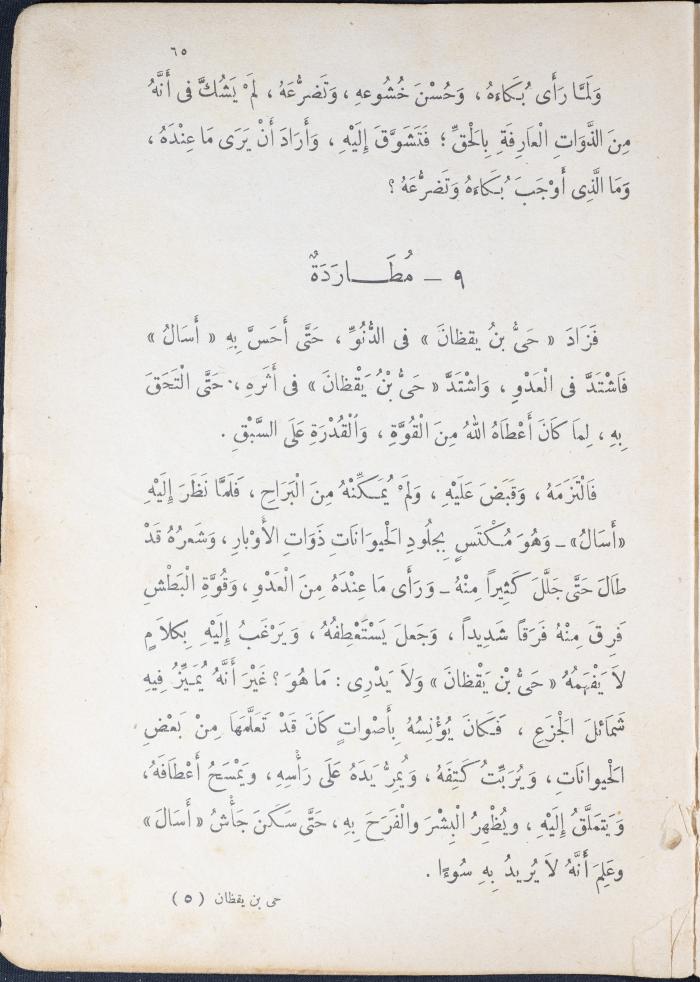 ٦٥
وَلَمَّا رَأَى بُكَاءَهُ ، وَحُسْنَ خُشُوعِهِ ، وَتَضَرُّعَهُ ، لَمْ يَشُكَّ فى أَنَّهُ
مِنَ الذَّوَاتِ الْعَارِفَةِ بِالْحَقِّ ؛ فَتَشَوَّقَ إِلَيْهِ ، وَأَرَادَ أَنْ يَرَى مَا عِنْدَهُ ،
وَمَا الَّذِى أَوْجَبَ بُكَاءَهُ وَتَضَرُّعَهُ ؟
٩ – مُطَــارَدَةٌ
فَزَادَ « حَىُّ بنُ يقظانَ » فى الدُّنُوِّ ، حَتَّى أَحَسَّ بِهِ « أَسَالُ »
فَاشْتَدَّ فى الْعَدْوِ ، وَاشْتَدَّ « حَىُّ بْنُ يَقْظَانَ » فى أَثَرِهِ ، حَتَّى الْتَحَقَ
بِهِ ، لِمَا كَانَ أَعْطَاهُ اللهُ مِنَ الْقُوَّةِ ، وَالْقُدْرَةِ عَلَى السَّبْقِ .
فَالْتَزَمَهُ ، وَقَبَضَ عَلَيْهِ ، وَلَمْ يُمَكِّنْهُ مِنَ الْبَرَاحِ ، فَلَمَّا نَظَرَ إِلَيْهِ
«أَسَالُ» – وَهُوَ مُكْتَسٍ بِجُلُودِ الْحيوَانَاتِ ذَوَاتِ الْأَوْبَارِ ، وَشَعرُهُ قَدْ
طَالَ حَتَّى جَلَّلَ كَثِيراً مِنْهُ – وَرَأَى مَا عِنْدَهُ مِنَ الْعَدْوِ ، وَقُوَّةِ الْبَطْشِ
فَرِقَ مِنْهُ فَرَقًا شَدِيداً ، وَجَعلَ يَسْتَعْطِفُهُ ، وَيَرْغَبُ إِلَيْهِ بِكَلَامٍ
لَا يَفْهَمُهُ « حَىُّ بْن يَقْظَانَ » وَلَا يَدْرِى : مَا هُوَ ؟ غَيْرَ أَنَّهُ يُمَيِّزُ فِيهِ
شَمَائلَ الْجَزَعِ ، فَكَانَ يُؤْنِسُهُ بِأَصْوَاتٍ كَانَ قَدْ تَعَلَّمَهَا مِنْ بَعْضِ
الْحيوانَاتِ ، وَيُرَبِّتُ كَتِفَهُ ، وَيُمِرُّ يَدَهُ عَلَى رَأْسِهِ ، ويَمْسَحُ أَعْطَافَهُ ،
وَيَتَملَّقُ إِلَيْهِ ، ويُظْهِرُ الْبِشْرَ والْفَرَحَ بِهِ ، حَتَّى سَكَنَ جَأْشُ «أَسَالَ»
وعَلِمَ أَنَّهُ لَا يُرِيدُ بِهِ سُوءًا .
حى بن يقظان ( ٥ )